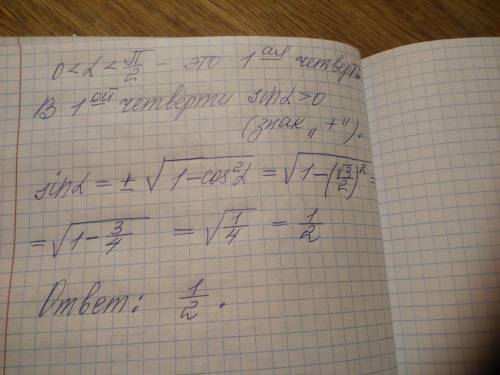 0 < α < π/2 - это 1ая четверть
В 1ой четверти sinα > 0
(знак „+").
sinα = ± √(1-cos²α) = √(1-(√3/2)²) =
= √(1-3/4) = √(1/4) = 1/2
Ответ: 1/2.